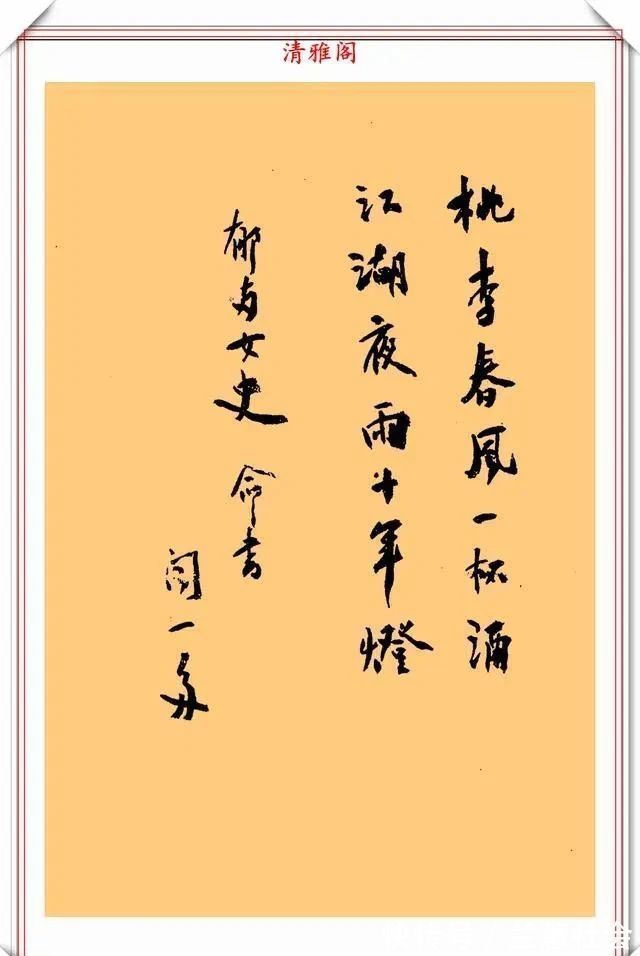 清雅阁
桃李春風一杯酒
江湖夜雨十年燈
郁女史 命書
聞一多